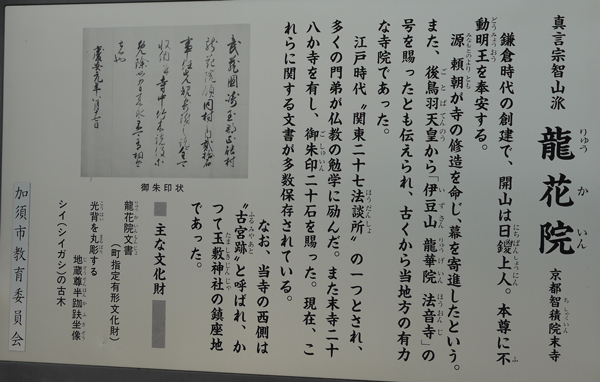 真言宗智山派 龍花院 京都智積院末寺
鎌倉時代の創建で、開山は日鑁上人。本尊に不
動明王を奉安する。
源頼朝が寺の修造を命じ、幕を寄進したという。
また、後鳥羽天皇から「伊豆山 龍華院 法音寺」の
号を賜ったとも伝えられ、古くから当地方の有力
な寺院であった。
江戸時代〝関東二十七法談所〟の一つとされ、
多くの門弟が仏教の勉学に励んだ。また末寺二十
八か寺を有し、御朱印二十石を賜った。現在、こ
れらに関する文書が多数保存されている。
なお、当寺の西側は
〝古宮跡〟と呼ばれ、か
つて玉敷神社の鎮座地
であった。
主な文化財
龍花院文書
(町指定有形文化財)
光背を丸彫する
地蔵尊半跏趺坐像
シイ(シイガシ)の古木
御朱印状
加須市教育委員会